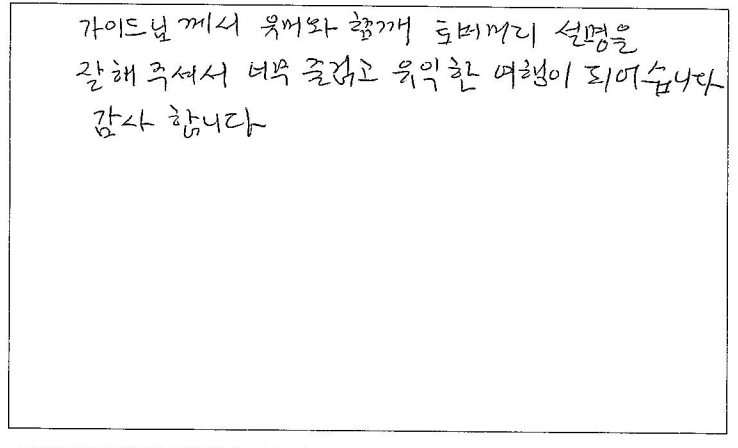 가이드님께서 윳머와 함깨 설명을
잘해 주셔서 너무 즐겁고 유익한 여행이 되어습니다
감사 합니다